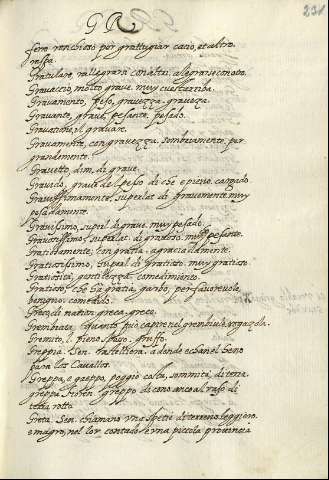 G R
231
fero rondinoso per grattugiar cacio, et altro.
raspa
Gratulare, rallegrarsi con altri. alegrarse con otro.
Gravaccio, molto grave. muy
Gravamento, peso, gravezza. graveza.
Gravante, grave, pesante. pesado.
Gravatione, il gravare.
Gravamente, con gravezza. sommamente. por
grandemente.
Gravetto, dim. di grave.
Gravido, grave del peso di che è pieno. cargado
Gravissimamente, superlat. di gravemente. muy
pesadamente.
Gravissimo, superl. di grave. muy pesado.
Gravosissimo, superlat. di gravoso. muy pesante.
Gratiosamente, con gratia. agraciadamente.
Gratiosissimo, superl. di gratioso. muy gratioso
Gratiosità, gentilezza. comedimiento.
Gratioso, che ha gratia, garbo, per favorevole,
benigno. comedido.
Greco, di nation greca. greco.
Grembiata, quanto può capire nel grembiule.
Gremito, pieno, spesso.
Greppia. Sen. rastelliera. a donde echan el heno
para los Cavallos.
Greppa, e greppo, poggio, sommità di terra.
greppa. Fioren. greppo. di
terra rotto
Greta. Sen. chiamano una spetie di terreno leggiero,
e magro, nel lor contado è una piccola provincia